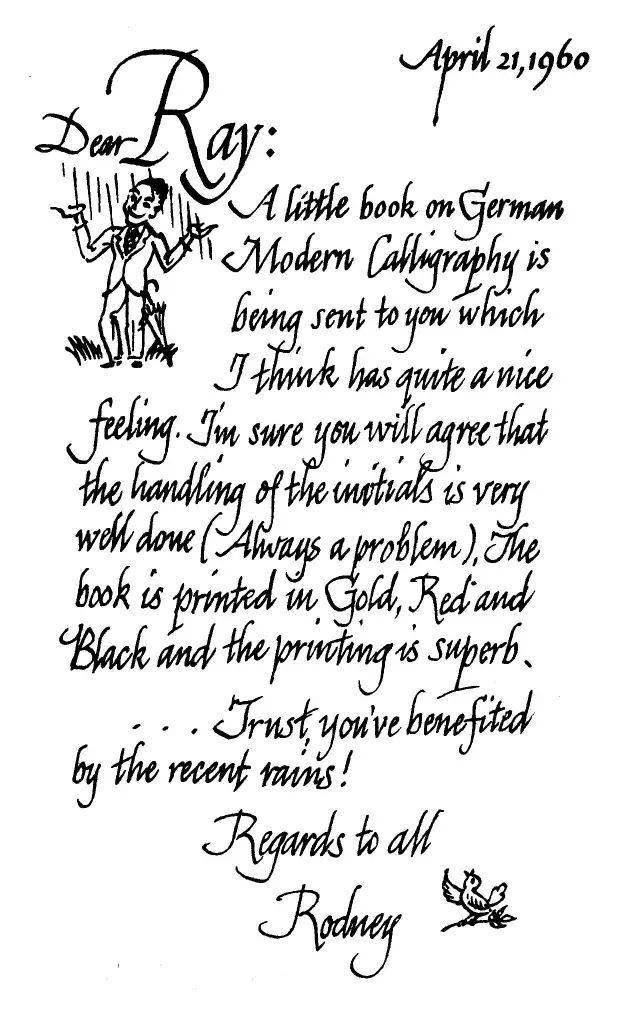 April 21, 1960
Dear Ray:
A little book on German
Modern Calligraphy is
being sent to you which
I think has quite a nice
feeling. I'm sure you will agree that
the handling of the initials is very
well done (Always a problem). The
book is printed in Gold, Red and
Black and the printing is superb.
. . . Trust you've benefited
by the recent rains!
Regards to all
Rodney